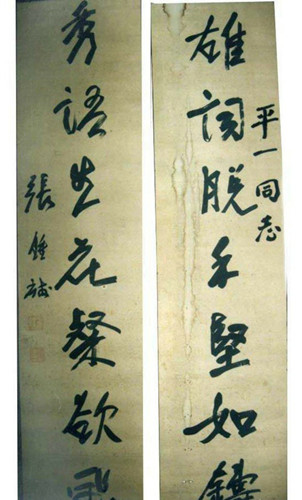 雄詞脫手堅如
平一同志
秀語生花粲欲
張鍾